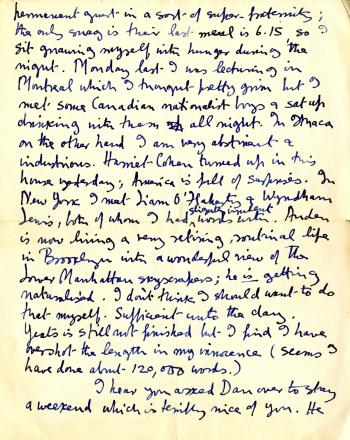 permanent guest in a sort of super-fraternity;
the only snag is their last meal is 6.15, so I
sit gnawing myself with hunger during the
night. Monday last I was lecturing in
Montreal which I thought pretty grim but I
met some Canadian nationalist boys & sat up
drinking with them all night. In Ithaca
on the other hand I am very abstinent &
industrious. Harriet Cohen turned up in this
house yesterday; America is full of surprises. In
New York I met Liam O'Flaherty & Wyndham
Lewis, both of whom I had slightly virulent words with. Auden
is now living a very retiring, routinal life
in Brooklyn with a wonderful view of the
Lower Manhattan skyscrapers; he is getting
naturalised. I don't think I should want to do
that myself. Sufficient unto the day.
Yeats is still not finished but I find I have
overshot the length in my innocence (seems I
have done about 120,000 words.)
I hear you asked Dan over to stay
a weekend which is terribly nice of you. He